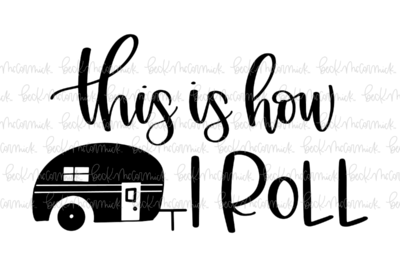 this is how
I ROLL